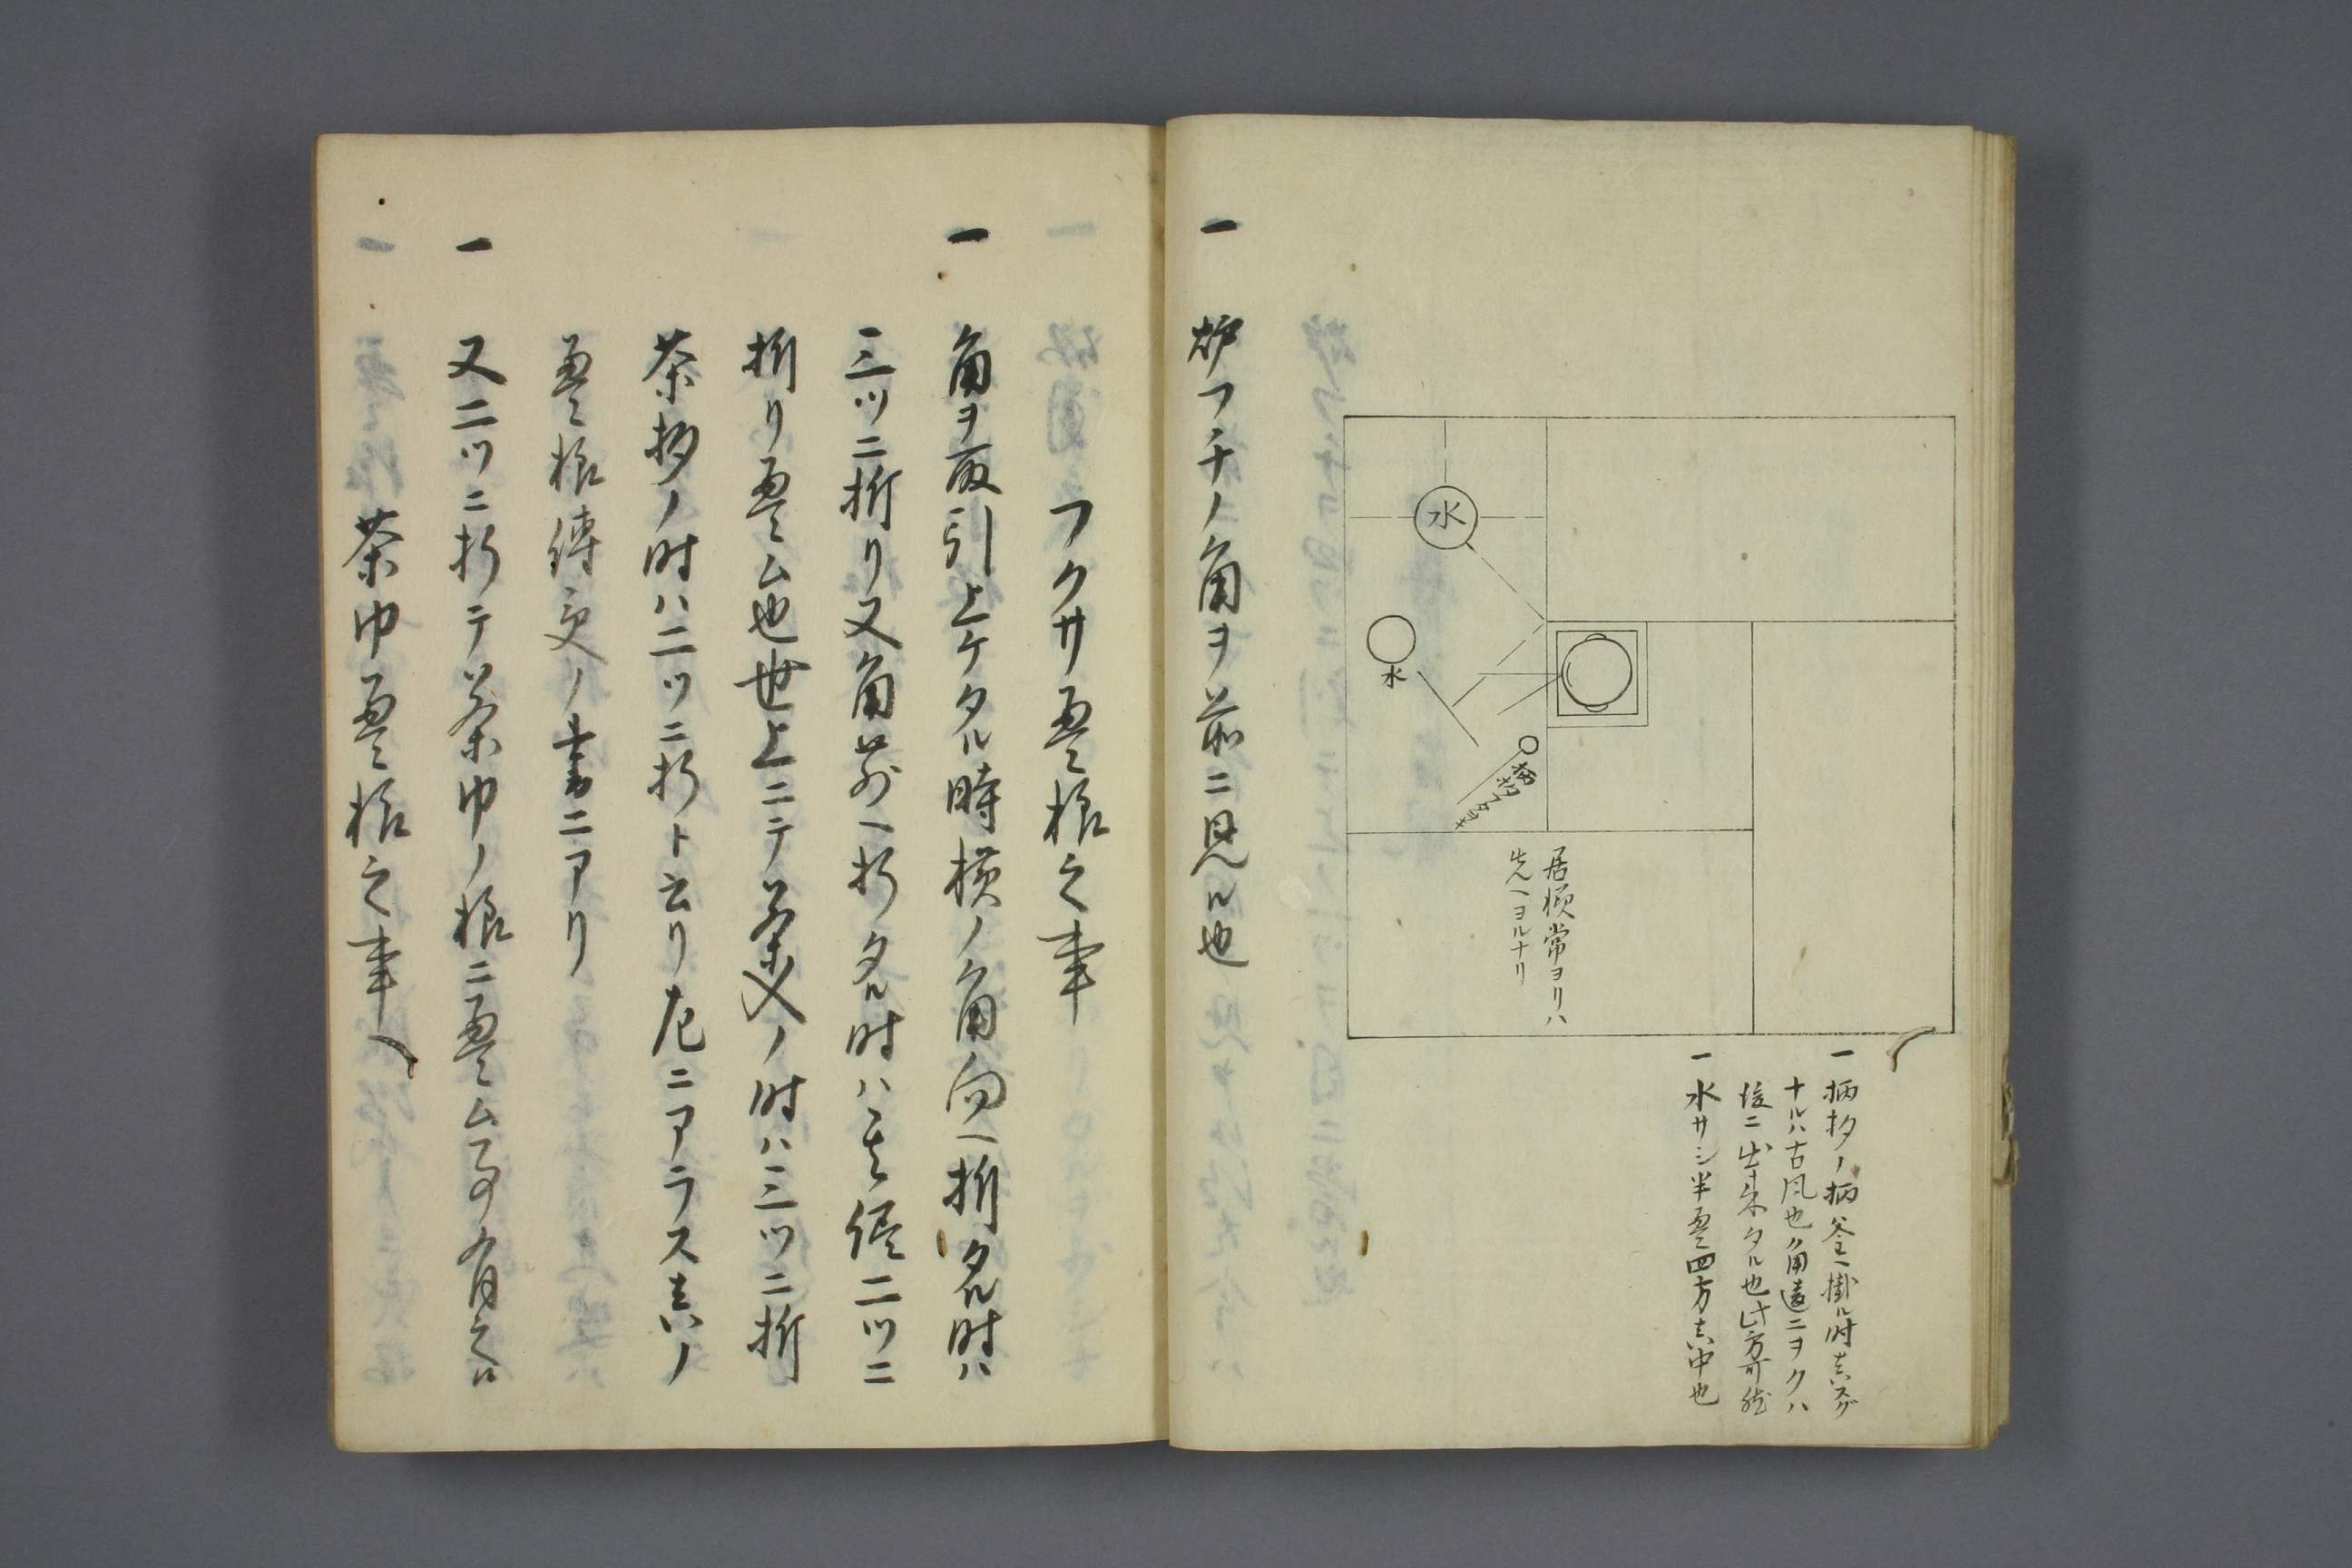 水
水
柄杓フタヲキ
居様常ヨリハ
先ヘヨルナリ
一 柄杓ノ柄釜ヘ掛ル時真スグ
ナルハ古風也角違ニヲクハ
後ニ出来タル也此方可然
一 水サシ半畳四方真中也
一 炉フチノ角ヲ前ニ見ル也
フクサ畳ミ様之事
一 角ヲ取引上ケタル時横ノ角向ヘ折タル時ハ
三ツニ折リ又角前ヘ折タル時ハ其侭二ツニ
折リ畳ミム也世上ニテ茶入ノ時ハ三ツニ折
茶杓ノ時ハ二ツニ折ト云リ左ニアラス真ノ
畳ミ様傳受ノ書ニアリ
一 又二ツニ折テ茶巾ノ様ニ畳ミム事有之ハ
茶巾畳ミ様之事